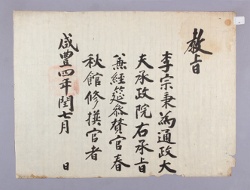 教旨
李宗秉爲通政大
夫承政院右承旨
兼經筵參贊官春
秋館修撰官者
咸豊四年閏七月　日